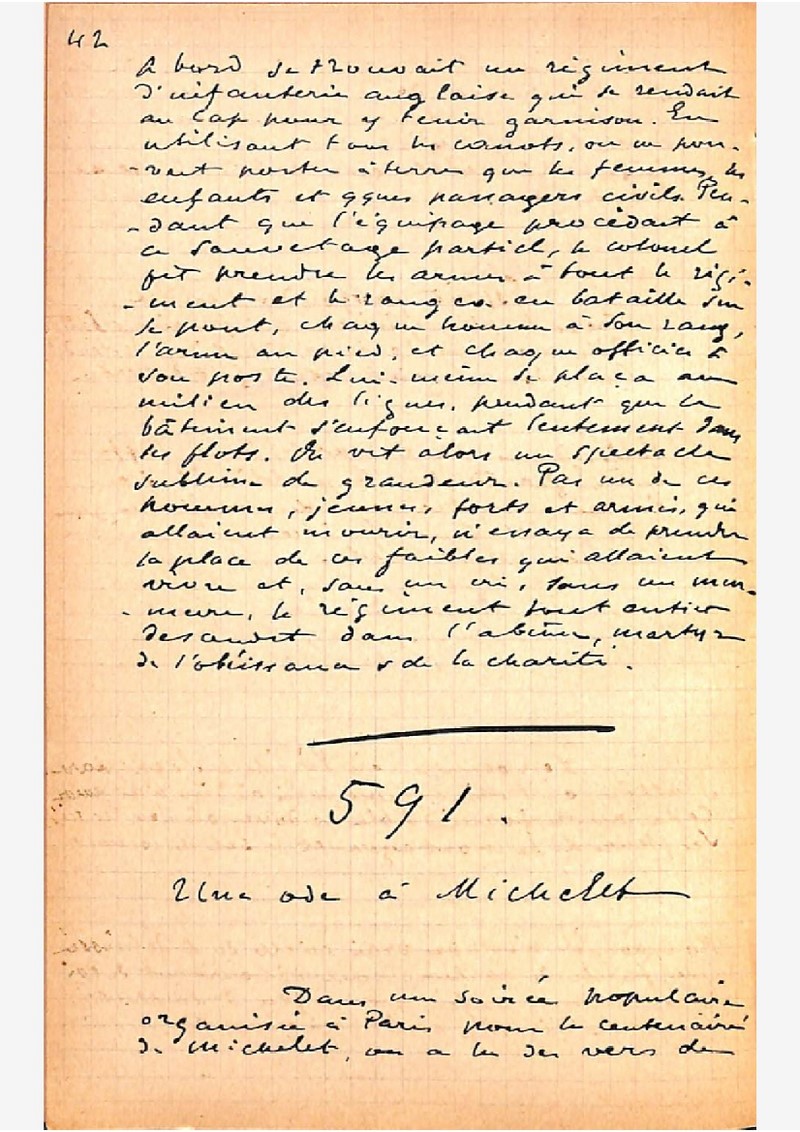 42
A bord se trouvait un régiment
d'infanterie anglaise qui se rendait
au Cap pour y tenir garnison. En
utilisant tous les canots, on ne pou-
-vait porter à terre que les femmes, les
enfants et qques passagers civils. Pen-
-dant que l'équipage procédait à
ce sauvetage partiel, le colonel
fit prendre les armes à tout le régi-
-ment et le rangea en bataille sur
le pont, chaque homme à son rang,
l'arme au pied, et chaque officier à
son poste. Lui-même se plaça au
milieu des lignes, pendant que le
bâtiment s'enfonçait lentement dans
les flots. On vit alors un spectacle
sublime de grandeur. Pas un de ces
hommes, jeunes, forts et armés, qui
allaient mourir, n'essaya de prendre
la place de ces faibles qui allaient
vivre et, sans un cri, sans un mur-
-mure, le régiment tout entier
descendit dans l'abîme, martyr
de l'obéissance & de la charité.
591.
Une ode à Michelet
Dans une soirée populaire
organisée à Paris pour le centenaire
de Michelet, on a lu des vers de